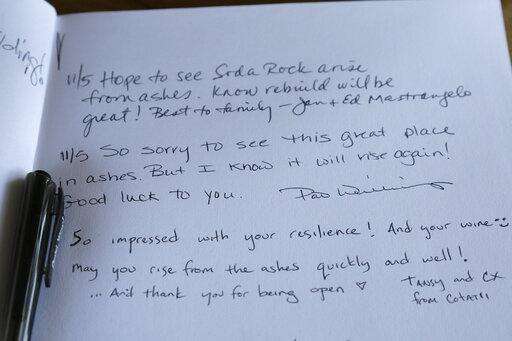 olding!
11/5 Hope to see Soda Rock arise
from ashes. Know rebuild will be
great! Best to family - Jan + Ed Mastrangelo
11/5 So sorry to see this great place
in ashes. But I know it will rise again!
Good luck to you.
So impressed with your resilience! And your wine
May you rise from the ashes quickly and well!
... And thank you for being open
Tansy and CX
from Cotati